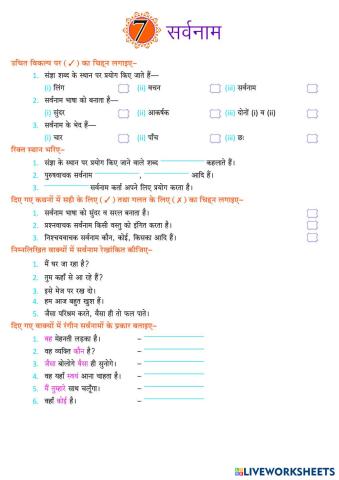 7 सर्वनाम
उचित विकल्प पर (✓) का चिह्न लगाइए–
1. संज्ञा शब्द के स्थान पर प्रयोग किए जाते हैं—
(i) लिंग (ii) वचन (iii) सर्वनाम
2. सर्वनाम भाषा को बनाता है—
(i) सुंदर (ii) आकर्षक (iii) दोनों (i) व (ii)
3. सर्वनाम के भेद हैं—
(i) चार (ii) पाँच (iii) छः
रिक्त स्थान भरिए–
1. संज्ञा के स्थान पर प्रयोग किए जाने वाले शब्द कहलाते हैं।
2. पुरुषवाचक सर्वनाम , आदि हैं।
3. सर्वनाम कर्ता अपने लिए प्रयोग करता है।
दिए गए कथनों में सही के लिए (✓) तथा गलत के लिए (✗) का चिह्न लगाइए–
1. सर्वनाम भाषा को सुंदर व सरल बनाता है।
2. प्रश्नवाचक सर्वनाम किसी वस्तु को इंगित करता है।
3. निश्चयवाचक सर्वनाम कौन, कोई, किसका आदि हैं।
निम्नलिखित वाक्यों में सर्वनाम रेखांकित कीजिए–
1. मैं घर जा रहा हूँ?
2. तुम कहाँ से आ रहे हैं?
3. इसे मेज पर रख दो।
4. हम आज बहुत खुश हैं।
5. जैसा परिश्रम करते, वैसा ही तो फल पाते।
दिए गए वाक्यों में रंगीन सर्वनामों के प्रकार बताइए–
1. वह मेहनती लड़का है। –
2. वह व्यक्ति कौन है? –
3. जैसा बोलोगे वैसा ही सुनोगे। –
4. वह यहाँ स्वयं आना चाहता है। –
5. मैं तुम्हारे साथ चलूँगा। –
6. वहाँ कोई है। –
LIVEWORKSHEETS